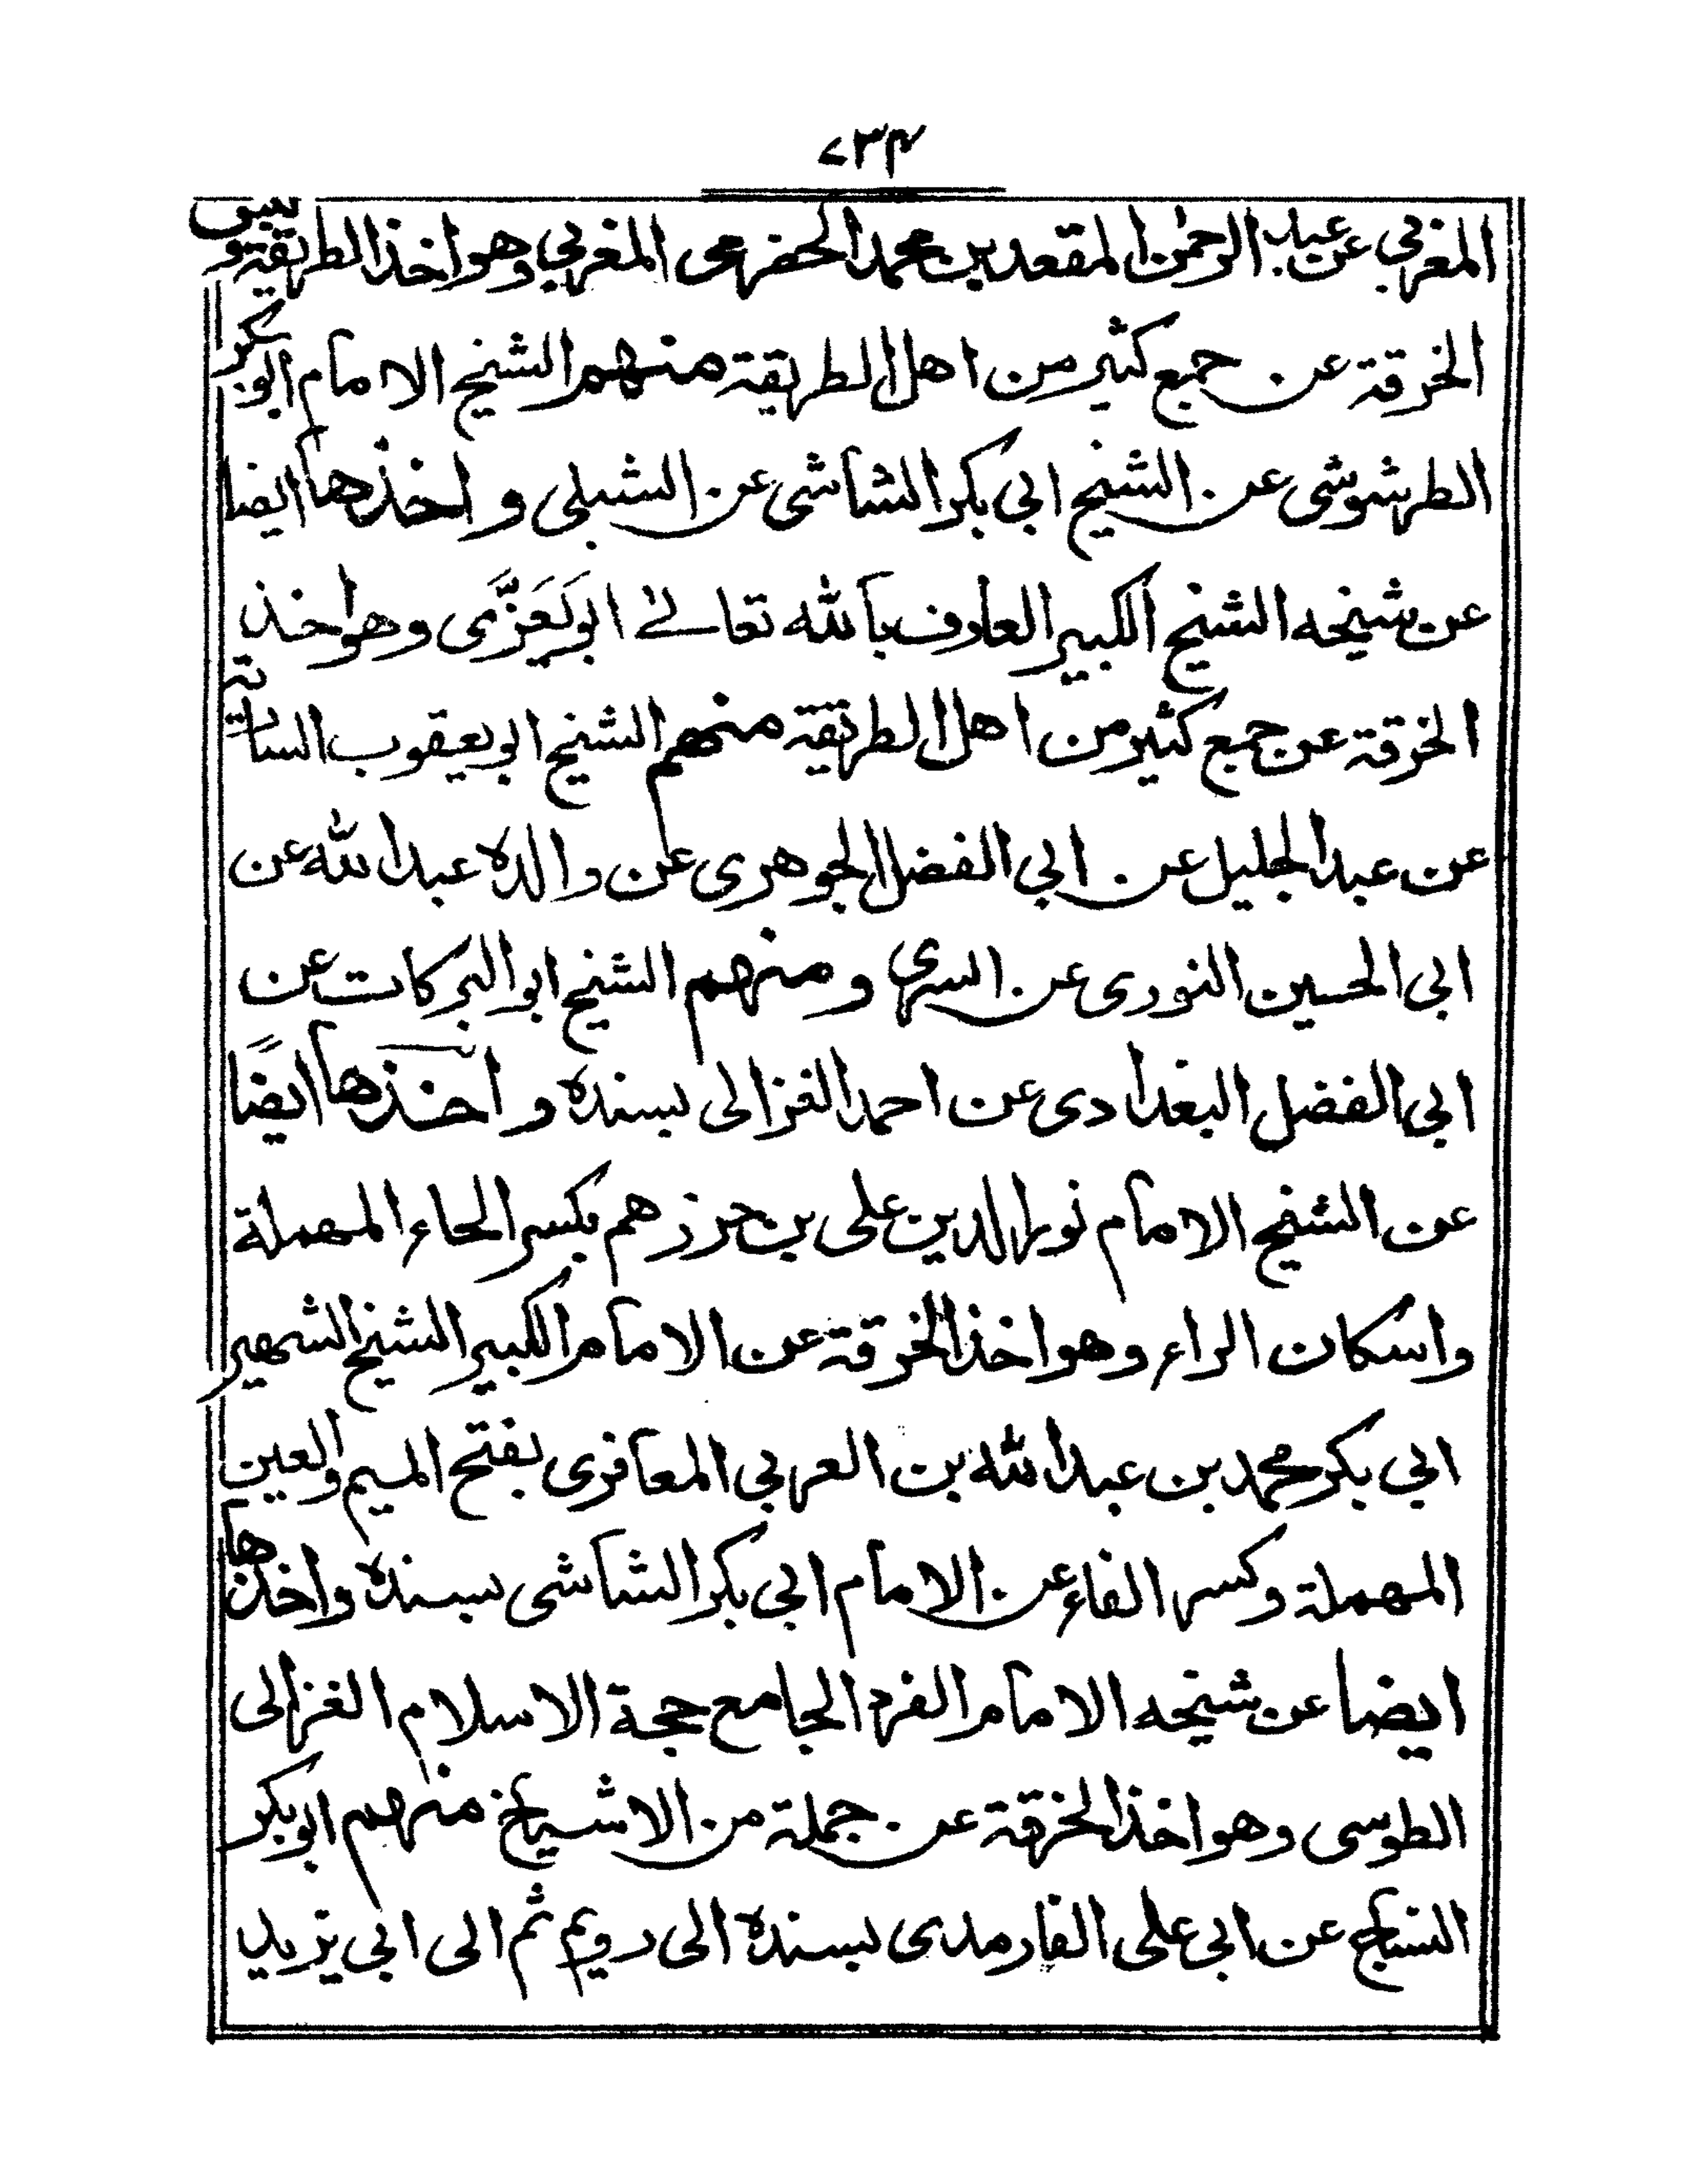 ٢٣٤
المغربي عن عبد الرحمن المقعد بن محمد الحضرمى المغربي وهو اخذ الطريقة و لبس
الخرقة عن جمع كثير من اهل الطريقة منهم الشيخ الامام ابو بكر
الطرشوشى عن الشيخ ابي بكر الشاشى عن الشبلى و اخذها ايضا
عن شيخه الشيخ الكبير العارف بالله تعالے ابو يَعَزَّى وهو اخذ
الخرقة عن جمع كثير من اهل الطريقة منهم الشيخ ابو يعقوب
عن عبد الجليل عن ابي الفضل الجوهرى عن والده عبد الله عن
ابي الحسين النورى عن السرى و منهم الشيخ ابو البركات عن
ابي الفضل البغدادى عن احمد الغزالى بسنده و اخذها ايضًا
عن الشيخ الامام نور الدين على بن حرزهم بكسر الحاء المهملة
واسكان الراء وهو اخذ الخرقة عن الامام الكبير الشيخ الشهير
ابي بكر محمد بن عبد الله بن العربي المعافرى بفتح الميم والعين
المهملة وكسر الفاء عن الامام ابي بكر الشاشى بسنده واخذها
ايضا عن شيخه الامام الفرد الجامع حجة الاسلام الغزالى
الطوسى وهو اخذ الخرقة عن جملة من الاشياخ منهم ابو بكر
النساج عن ابي على الفارمدى بسنده الى رويم ثم الى ابي يزيد